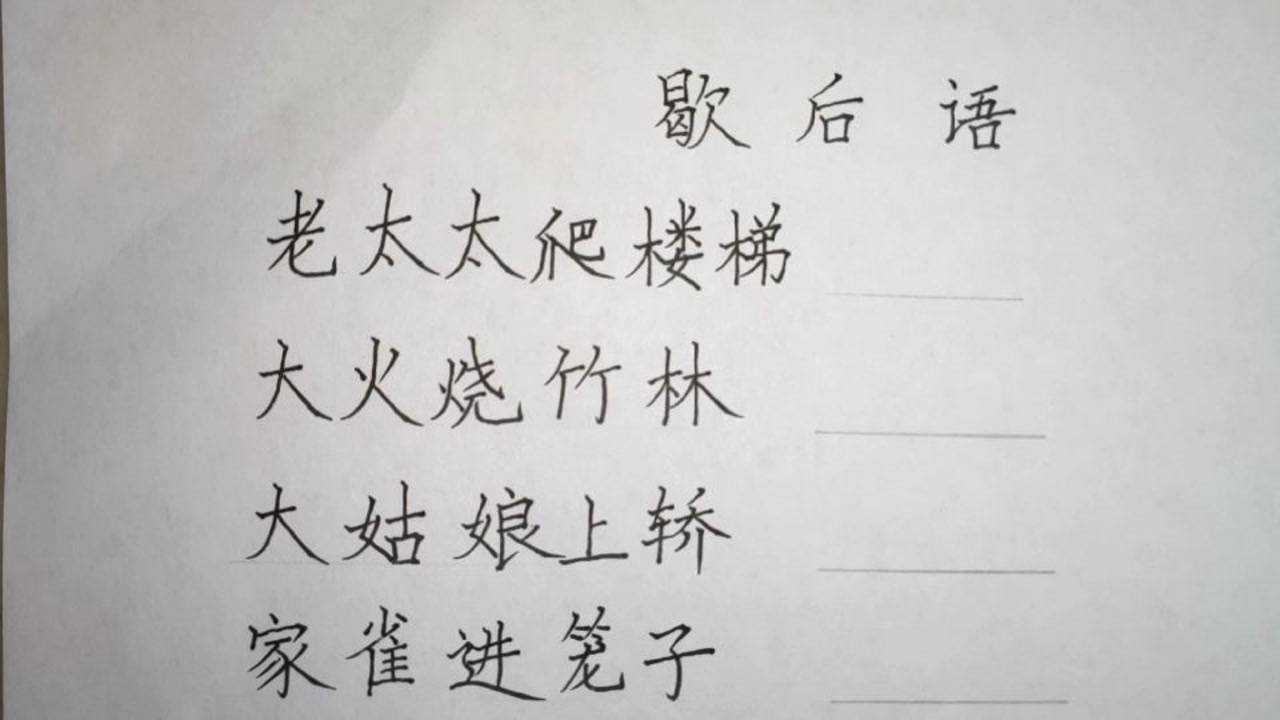 歇后语
老太太爬楼梯
大火烧竹林
大姑娘上轿
家雀进笼子